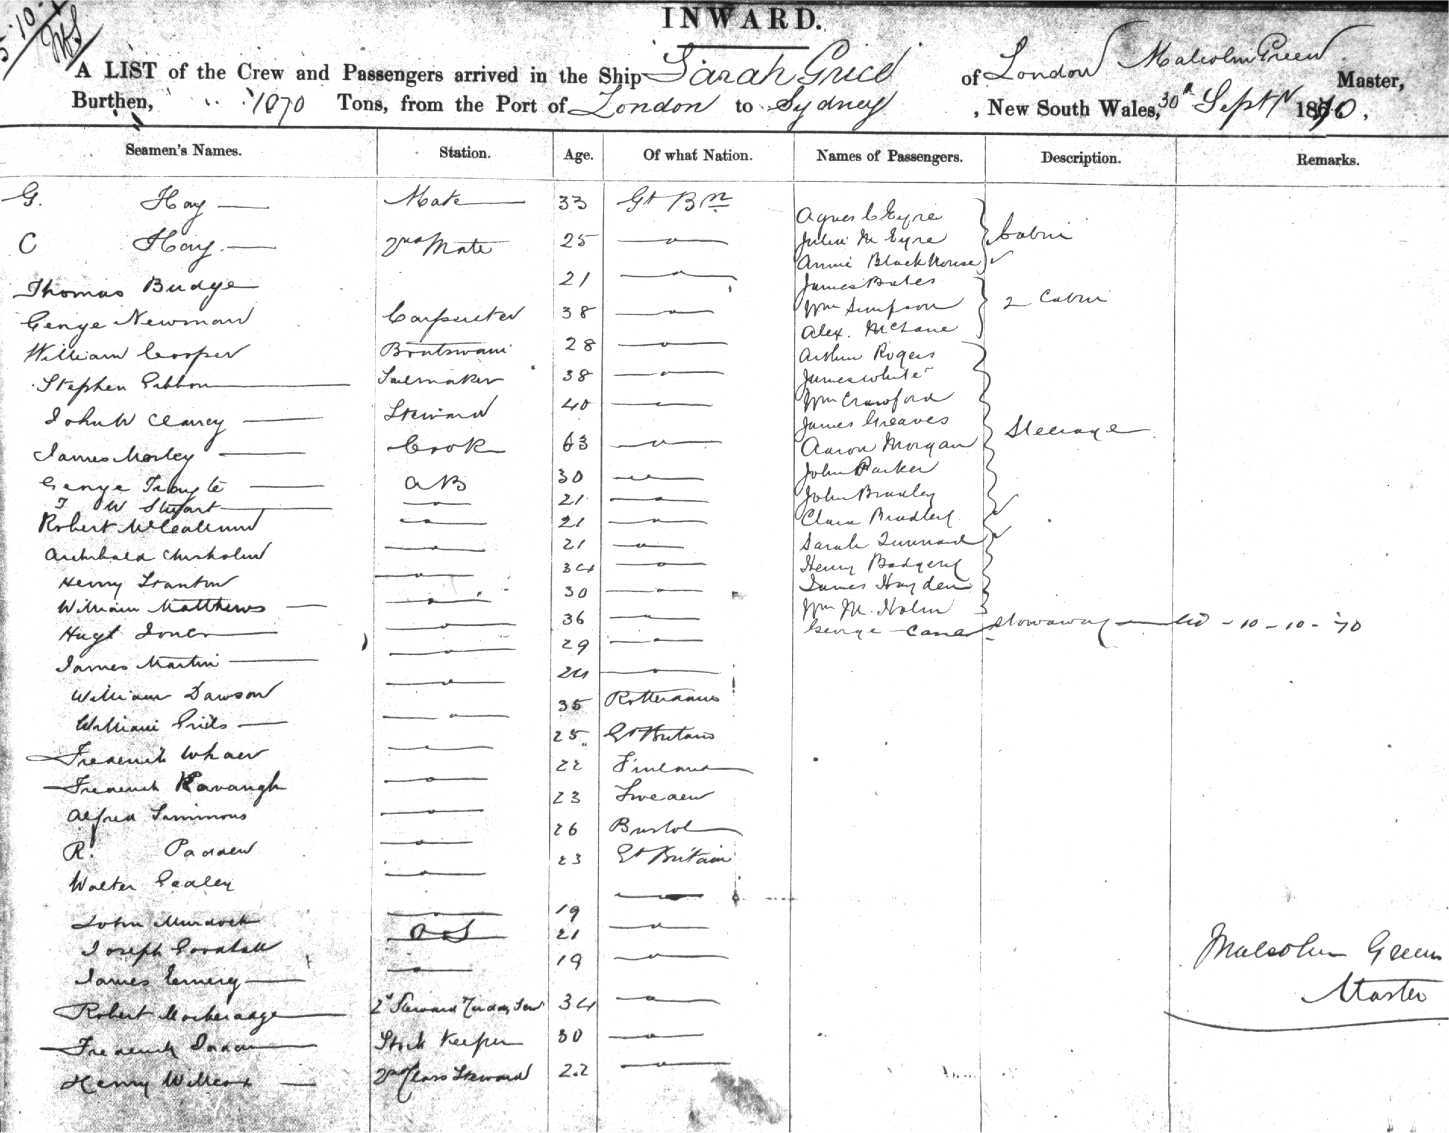 INWARD.
A LIST of the Crew and Passengers arrived in the Ship Sarah Grice of London Malcolm Green Master,
Burthen, 1070 Tons, from the Port of London to Sydney, New South Wales, 30th Septr 1870,
Seamen's Names. Station. Age. Of what Nation. Names of Passengers. Description. Remarks.
G. Hay Mate 33 Gt Bn
C Hay 2nd Mate 25 —"—
Thomas Budge 21 —"—
George Newman Carpenter 38 —"—
William Cooper Boatswain 28 —"—
Stephen Gibbon Sailmaker 38 —"—
John W Clancy Steward 40 —"—
James Morley Cook 63 —"—
George AB 30 —"—
F W Stewart —"— 21 —"—
Robert McCallum —"— 21 —"—
Archibald Chisholm —"— 21 —"—
Henry Stanton —"— 34 —"—
William Matthews —"— 30 —"—
Hugh Jones —"— 36 —"—
James Martin —"— 29
William Dawson —"— 24 —"—
William —"— 35 Rotterdam
Frederick —"— 25 Gt Britain
Frederick Kavangh —"— 22 Finland
Alfred Simmons —"— 23 Sweden
R. Padden —"— 26 Bristol
Walter Sealey —"— 23 Gt Britain
John Murdoch —"— 19 —"—
Joseph Goodall OS 21 —"—
James Emery —"— 19 —"—
Robert 2d Steward 34 —"—
Frederick Store Keeper 30 —"—
Henry Willcox 2nd Class Steward 22 —"—
Agnes C Eyre
Julia M Eyre Cabin
Annie Blackhouse
James Bates
Wm Simpson 2 Cabin
Alex. McLane
Arthur Rogers
James White
Wm Crawford
James Greaves
Aaron Morgan Steerage
John Parker
John Bradley
Clara Bradley
Sarah
Henry Badgery
James Hayden
Wm M. Holm
George Stowaway 10-10-70
Malcolm Green
Master